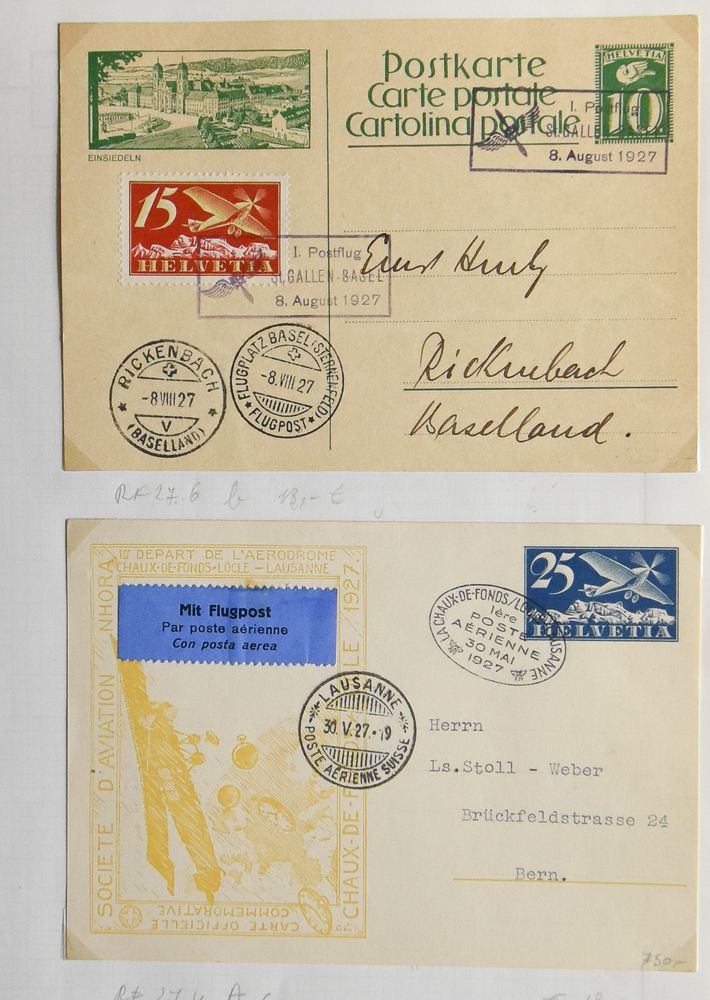 Postkarte
Carte postale
Cartolina postale
HELVETIA
10
I. Postflug
ST.GALLEN
8. August 1927
EINSIEDELN
15
HELVETIA
I. Postflug
ST.GALLEN-BASEL
8. August 1927
Rickenbach
Baselland.
RICKENBACH
-8.VIII 27
V
(BASELLAND)
FLUGPLATZ BASEL (STERNENFELD)
-8.VIII 27
FLUGPOST
RF 27.6 b 18,- €
1er DEPART DE L'AERODROME
CHAUX-DE-FONDS-LOCLE - LAUSANNE
SOCIETE D'AVIATION NHORA
1927
CHAUX-DE-
CARTE OFFICIELLE
COMMEMORATIVE
Mit Flugpost
Par poste aérienne
Con posta aerea
25
HELVETIA
LA CHAUX-DE-FONDS/LOCLE-LAUSANNE
1ère
POSTE
AÉRIENNE
30 MAI
1927
LAUSANNE
30.V.27.-19
POSTE AÉRIENNE SUISSE
Herrn
Ls.Stoll - Weber
Brückfeldstrasse 24
Bern.
750,-